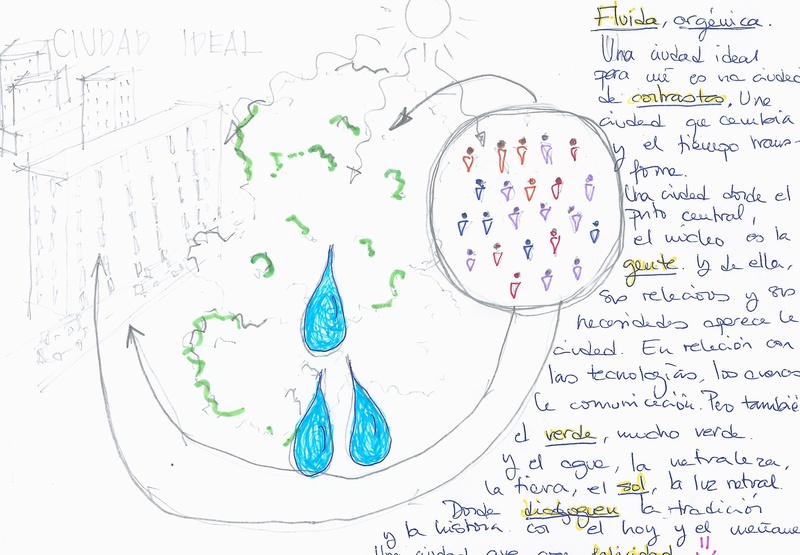 CIUDAD IDEAL
Fluida, orgánica.
Una ciudad ideal
para mí es una ciudad
de contrastes. Una
ciudad que cambia
y el tiempo trans-
forma.
Una ciudad donde el
punto central,
el núcleo es la
gente. Y de ella,
sus relaciones y sus
necesidades aparece la
ciudad. En relación con
las tecnologías, los avances
la comunicación. Pero también
el verde, mucho verde.
y el agua, la naturaleza,
la tierra, el sol, la luz natural.
Donde dialoguen la tradición
y la historia con el hoy y el mañana
Una ciudad que